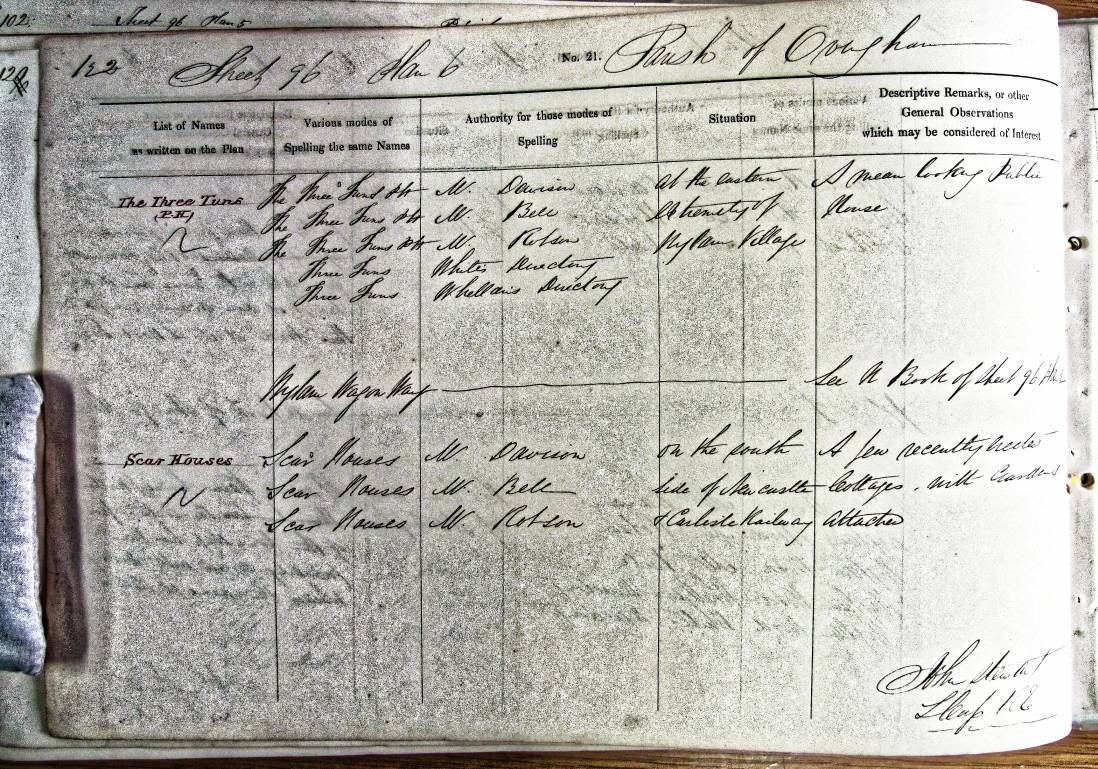 102 Sheet 96 Plan 5
122 Sheet 96 Plan 6 No. 21. Parish of Ovingham
List of Names
as written on the Plan
Various modes of
Spelling the same Names
Authority for those modes of
Spelling
Situation
Descriptive Remarks, or other
General Observations
which may be considered of Interest
The Three Tuns The Three Tuns PH Mr. Davison at the eastern A mean looking Public
(P.H) The Three Tuns PH Mr. Bell extremity of House
The Three Tuns PH Mr. Robson Wylam Village
Three Tuns Whites Directory
Three Tuns Whellans Directory
Wylam Wagon Way See N Book of Sheet 96
Scar Houses Scar Houses Mr. Davison on the south A few recently erected
Scar Houses Mr. Bell side of Newcastle Cottages, with Gardens
Scar Houses Mr. Robson & Carlisle Railway attached
John Stewart